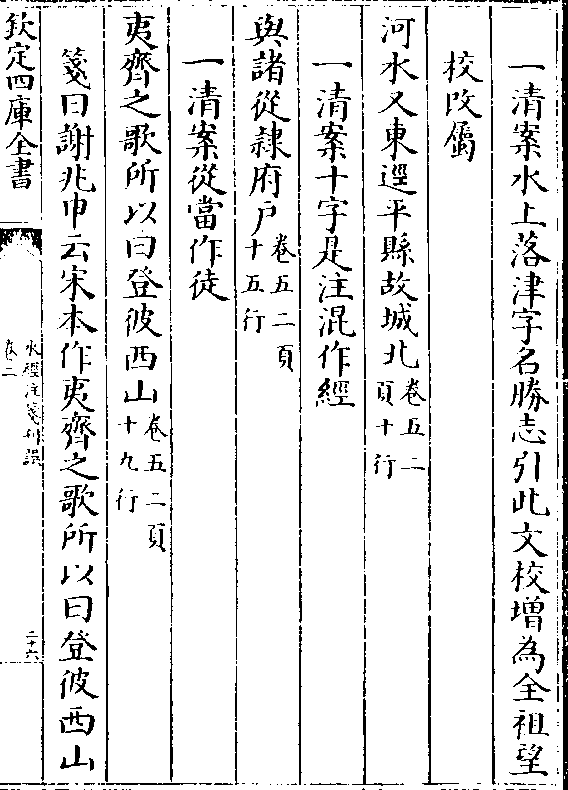 一清案水上落津字名勝志引此文校增為全祖望
校改屬
河水又東逕平縣故城北卷五二頁十行
一清案十字是注混作經
與諸從隸府户卷五二頁十五行
一清案從當作徒
夷齊之歌所以曰登彼西山卷五二頁十九行
箋曰謝兆申云宋本作夷齊之歌所以曰登彼西山
欽定四庫全書
水經注箋刋誤
卷二
二十六